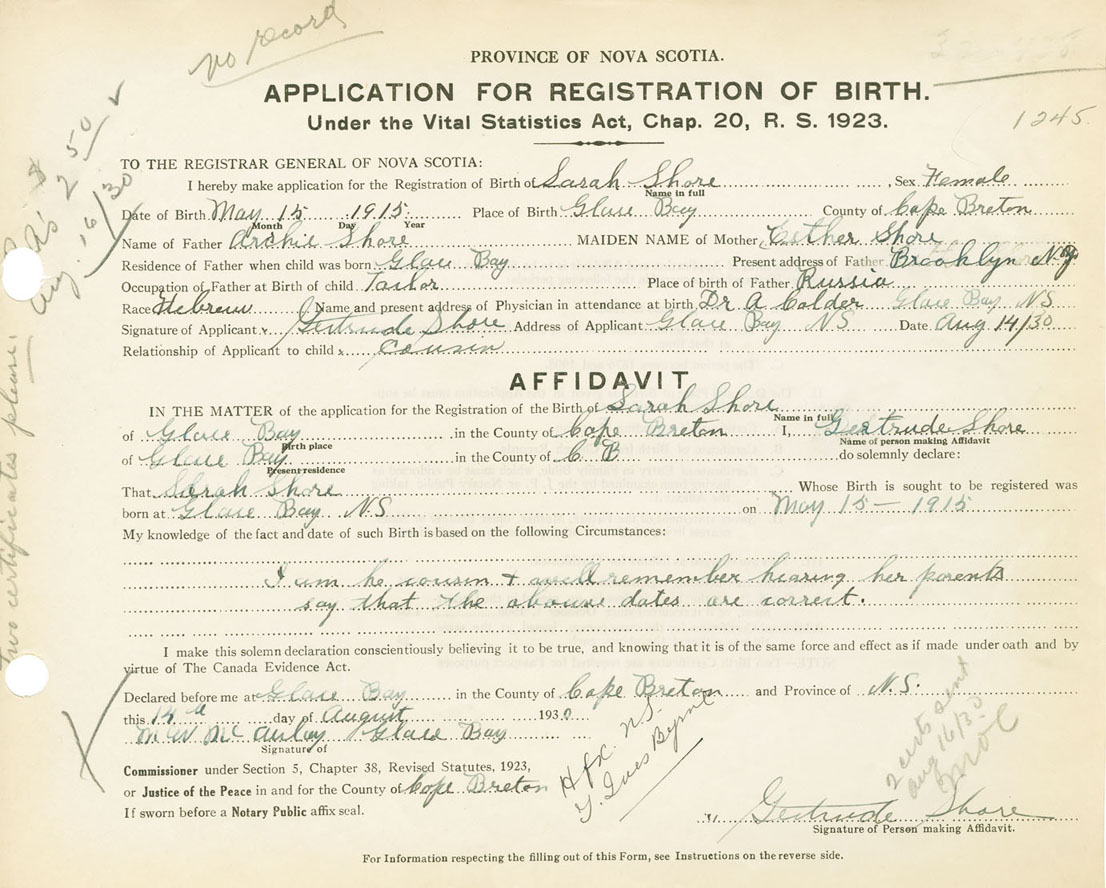 no record
PROVINCE OF NOVA SCOTIA.
APPLICATION FOR REGISTRATION OF BIRTH.
Under the Vital Statistics Act, Chap. 20, R. S. 1923.
1245.
$2.50
Aug. 16/30
two certificates please.
TO THE REGISTRAR GENERAL OF NOVA SCOTIA:
I hereby make application for the Registration of Birth of Sarah Shore, Sex Female
Name in full
Date of Birth May 15 1915 Place of Birth Glace Bay County of Cape Breton
Month Day Year
Name of Father Archie Shore MAIDEN NAME of Mother Esther Shore
Residence of Father when child was born Glace Bay Present address of Father Brooklyn N.Y.
Occupation of Father at Birth of child Tailor Place of birth of Father Russia
Race Hebrew Name and present address of Physician in attendance at birth Dr A Calder Glace Bay, NS
Signature of Applicant Gertrude Shore Address of Applicant Glace Bay NS Date Aug 14/30
Relationship of Applicant to child Cousin
AFFIDAVIT
IN THE MATTER of the application for the Registration of the Birth of Sarah Shore
Name in full
of Glace Bay in the County of Cape Breton I, Gertrude Shore
Birth place Name of person making Affidavit
of Glace Bay in the County of C. B do solemnly declare:
Present residence
That Sarah Shore Whose Birth is sought to be registered was
born at Glace Bay N.S on May 15 - 1915
My knowledge of the fact and date of such Birth is based on the following Circumstances:
I am he cousin + well remember hearing her parents
say that the above dates are correct.
I make this solemn declaration conscientiously believing it to be true, and knowing that it is of the same force and effect as if made under oath and by
virtue of The Canada Evidence Act.
Declared before me at Glace Bay in the County of Cape Breton and Province of N.S.
this 14th day of August 1930
M W McAulay Glace Bay
Signature of
Commissioner under Section 5, Chapter 38, Revised Statutes, 1923,
or Justice of the Peace in and for the County of Cape Breton
If sworn before a Notary Public affix seal.
Hfx. N.S.
2 certs sent
Aug 16/30
Gertrude Shore
Signature of Person making Affidavit.
For Information respecting the filling out of this Form, see Instructions on the reverse side.